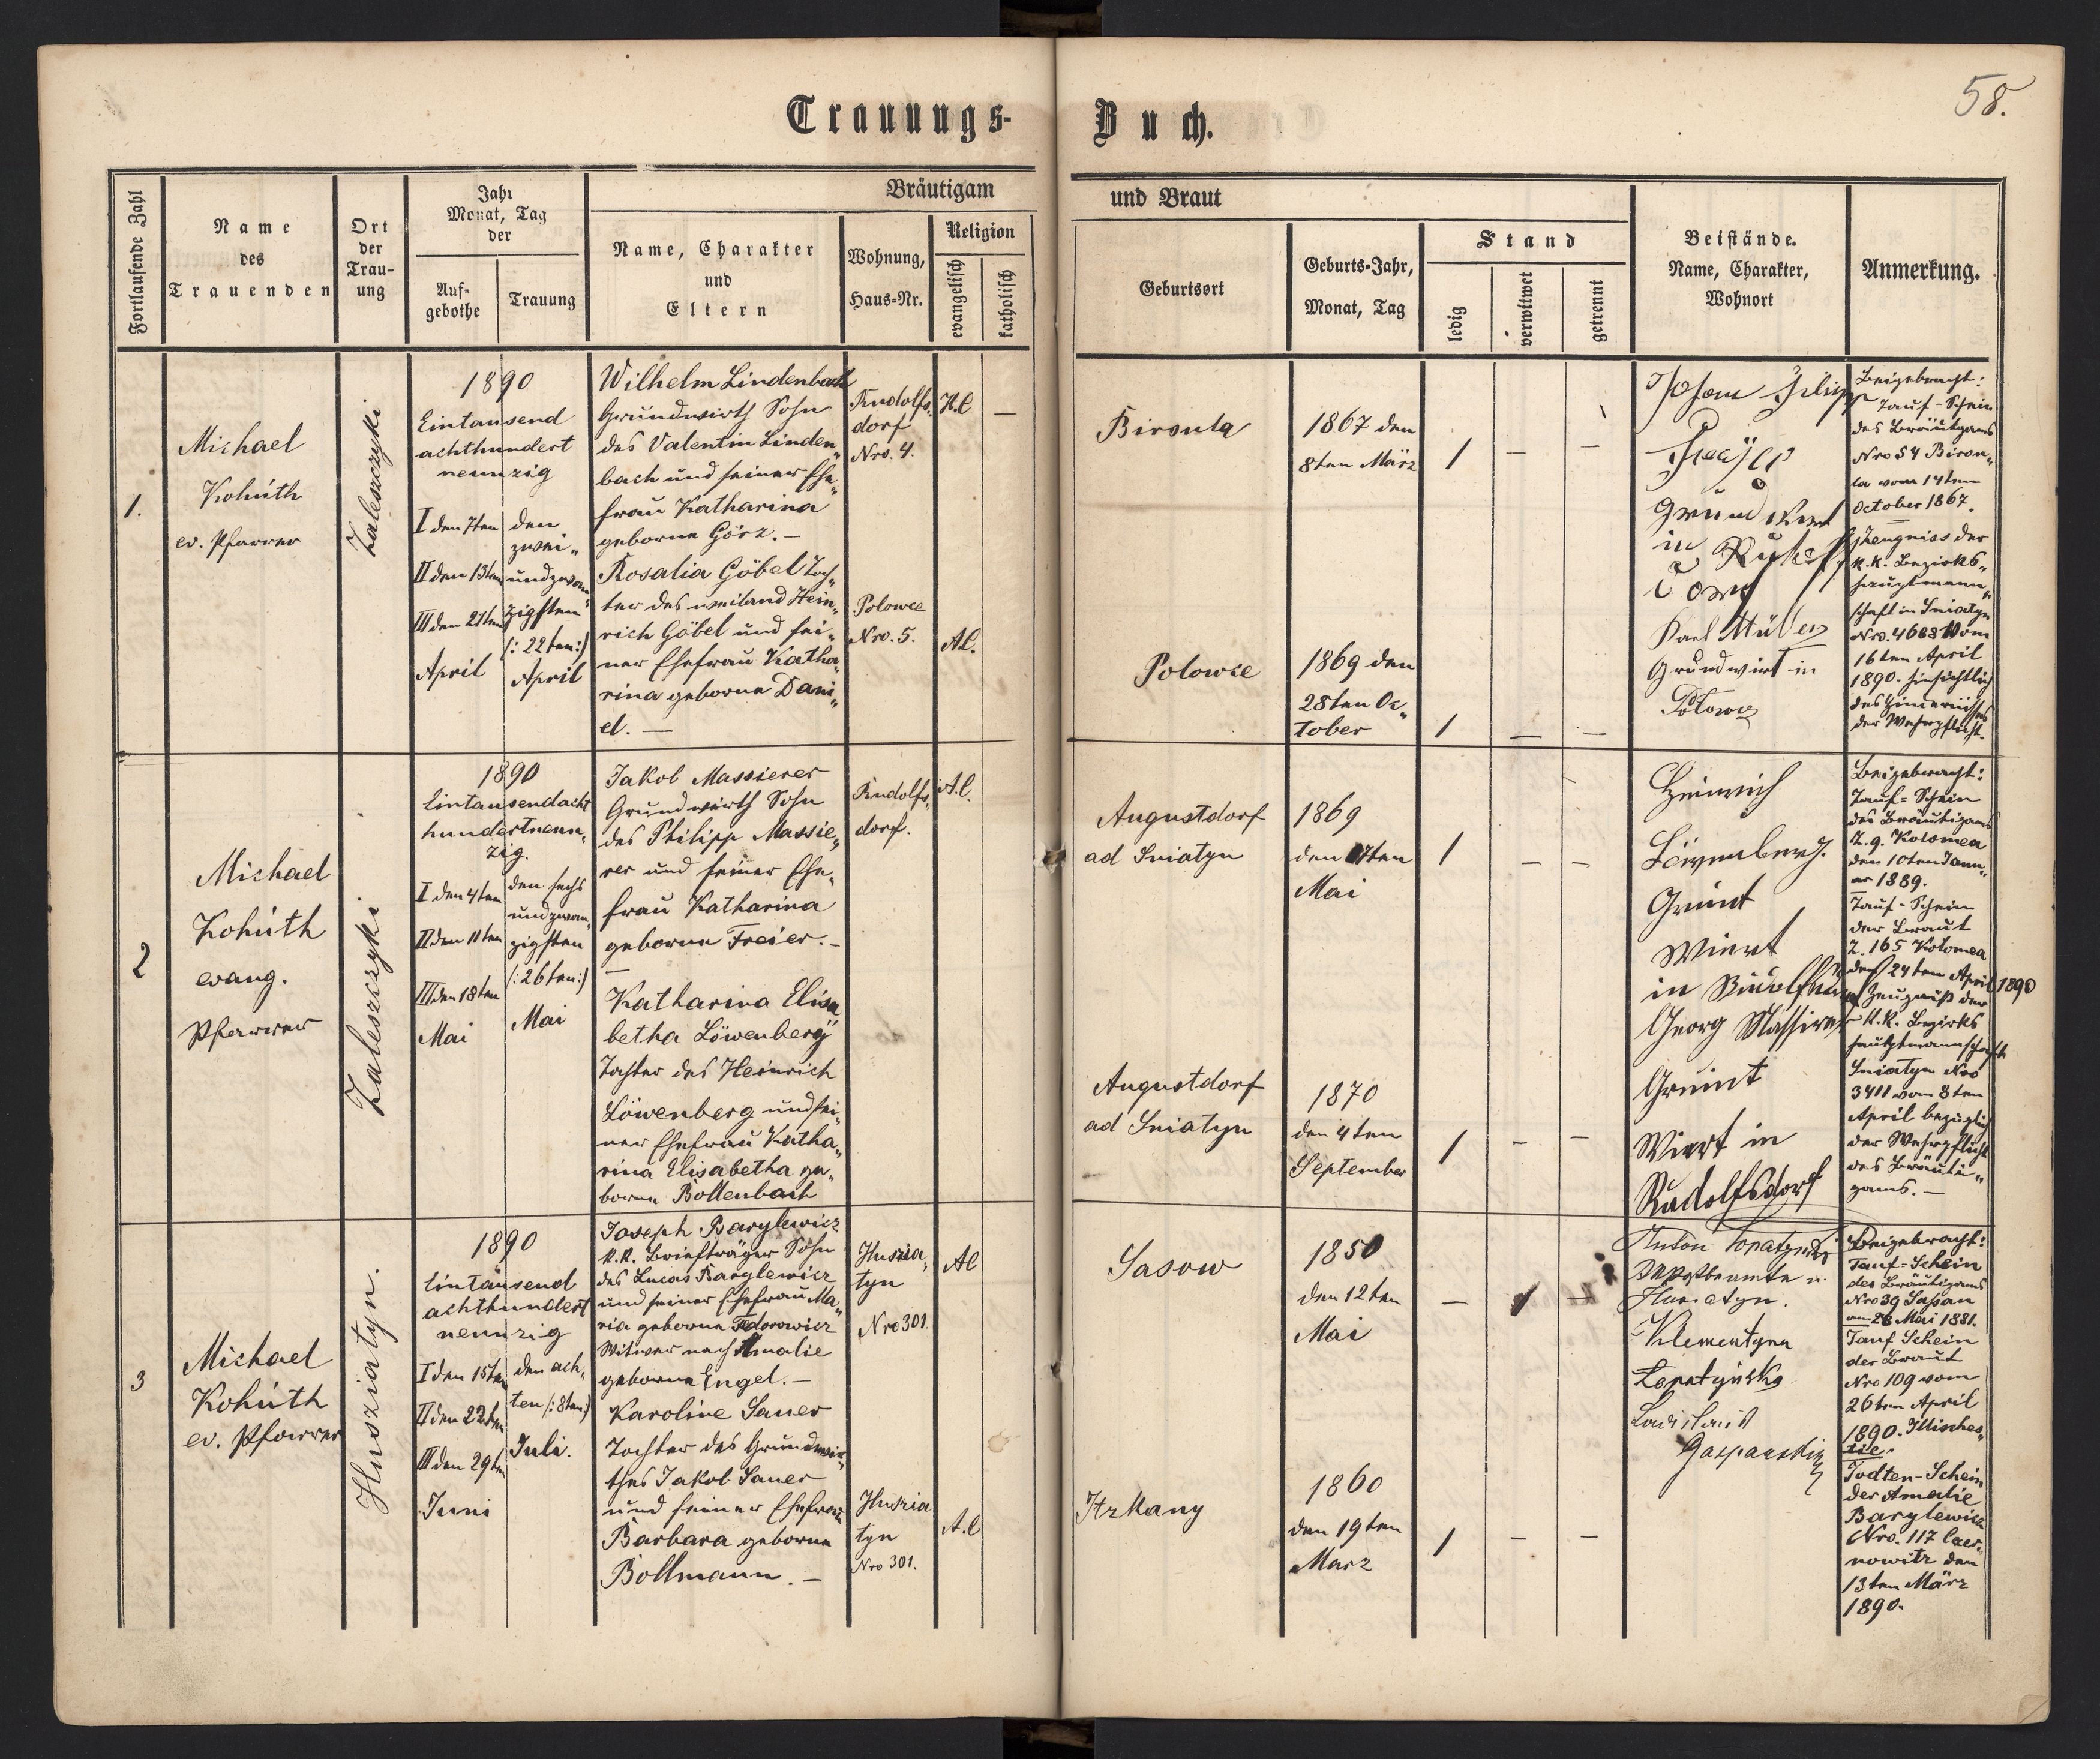 58.
Trauungs-Buch.
Fortlaufende Zahl
Name
des
Trauenden
Ort
der
Trau-
ung
Jahr
Monat, Tag
der
Auf-
gebothe
Trauung
Bräutigam und Braut
Name, Charakter
und
Eltern
Wohnung,
Haus-Nr.
Religion
evangelisch
katholisch
Geburtsort
Geburts-Jahr,
Monat, Tag
Stand
ledig
verwitwet
getrennt
Beistände.
Name, Charakter,
Wohnort
Anmerkung.
1.
Michael
Kohúth
ev. Pfarrer
Zaleszczyki
1890
Eintausend
achthundert
neunzig
I den 7ten
II den 13ten
III den 21ten
April
den
zwei„
undzwan„
zigsten
(: 22ten:)
April
Wilhelm Lindenbach
Grundwirth Sohn
des Valentin Linden„
bach und seiner Ehe„
frau Katharina
geborne Görz. —
Rosalia Göbel Toch„
ter des weiland Hein„
rich Göbel und sei„
ner Ehefrau Katha„
rina geborne Dani„
el. —
Rudolfs„
dorf
Nro. 4.
Polowce
Nro. 5.
H.C
—
A.C.
Birsula
Polowce
1867 den
8ten März
1869 den
28ten Oc„
tober
1 — —
1 — —
Johann Filipp
in
Karl Müller
Grundwirt in
Polowce
Beigebracht:
Tauf-Schein
des Bräutigams
Nro 54 Birsu„
la vom 14ten
October 1867.
Zeugniss der
k.k. Bezirks„
hauptmann„
schaft in Sniatyn
Nro. 4683 vom
16ten April
1890. hinsichtlich
des Hinternisses
der Wehrpflicht.
2
Michael
Kohúth
evang.
Pfarrer
Zaleszczyki
1890
Eintausendacht
hundertneun„
zig.
I den 4ten
II den 11ten
III den 18ten
Mai
den sechs
undzwan„
zigsten
(: 26ten:)
Mai
Jakob Massierer
Grundwirth Sohn
des Philipp Massie„
rer und seiner Ehe„
frau Katharina
geborne Freier. —
Katharina Elisa
betha Löwenberg
Tochter des Heinrich
Löwenberg und sei„
ner Ehefrau Katha„
rina Elisabetha ge„
borne Bollenbach
Rudolfs„
dorf.
A.C.
Augustdorf
ad Sniatyn
Augustdorf
ad Sniatyn
1869
den 17ten
Mai
1870
den 4ten
September
1 — —
1 — —
Heinrich
Löwenberg.
Grunt
Wiert
in
Georg Massirer
Grunt
Wiert in
Rudolfsdorf
Beigebracht:
Tauf-Schein
des Bräutigams
Z. 9. Kolomea
den 10ten Janu„
ar 1889.
Tauf-Schein
der Braut
Z. 165 Kolomea
den 24ten April 1890
Zeugniß der
k.k. Bezirks
hauptmannschaft
Sniatyn Nro
3411 vom 8ten
April bezüglich
der Wehrpflicht
des Bräuti„
gams. —
3
Michael
Kohúth
ev. Pfarrer
Husziatyn.
1890
Eintausend
achthundert
neunzig
I den 15ten
II den 22ten
III den 29ten
Juni
den ach„
ten (: 8ten:)
Juli.
Joseph Barylewicz
k.k. Briefträger Sohn
des Lucas Barylewicz
und seiner Ehefrau Ma„
ria geborne Fedorowicz
Witwer nach Amalie
geborne Engel. —
Karoline Sauer
Tochter des Grundwir„
thes Jakob Sauer
und seiner Ehefrau
Barbara geborne
Bollmann. —
Huszia„
tyn
Nro 301.
Huszia
tyn
Nro 301.
A.C
A.C
Sasow
Itzkany
1850
den 12ten
Mai
1860
den 19ten
März
— 1 —
1 — —
Anton Lopatynski
Postbeamte
Husiatyn.
Klementyna
Lopatyńska
Gasparski
Beigebracht:
Tauf-Schein
des Bräutigams
Nro 39 Sassan
am 26 Mai 1881.
Tauf Schein
der Braut
Nro 109 vom
26ten April
1890. Illisches„
tie.
Todten-Schein
der Amalie
Barylewicz
Nro. 117 Czer„
nowitz den
13ten März
1890.